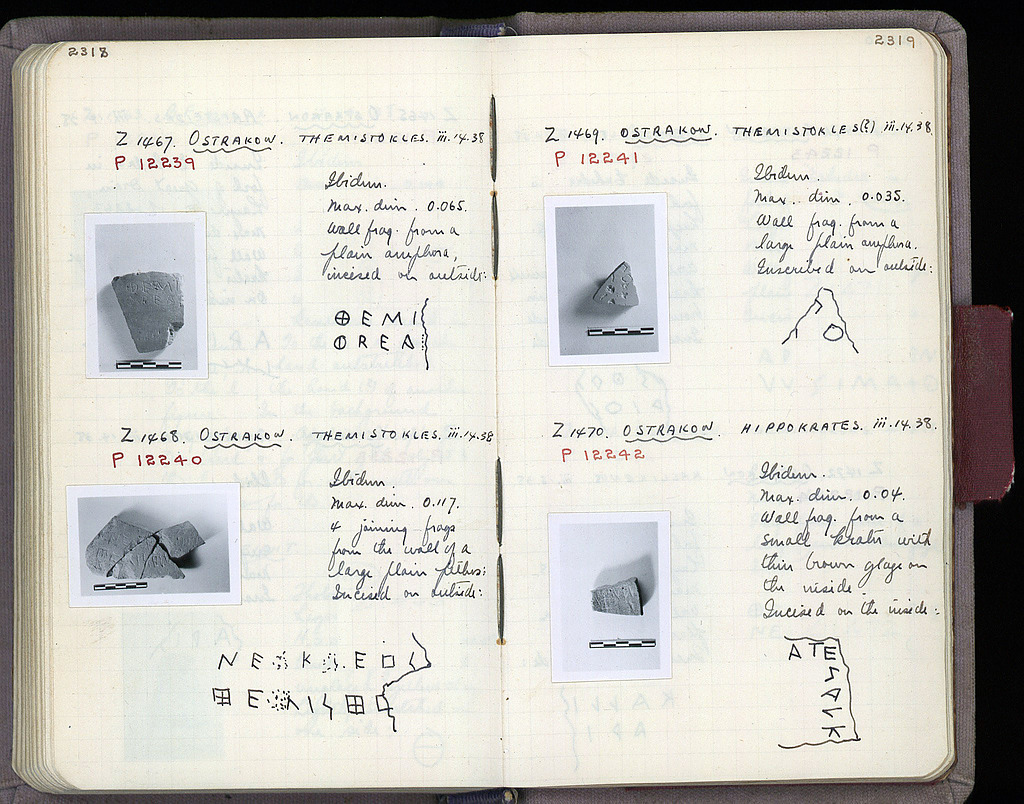 2318
Z 1467. OSTRAKON. THEMISTOKLES. iii.14.38
P 12239
Ibidem.
Max. dim. 0.065.
Wall frag. from a
plain amphora,
incised on outside:
ΘEMI
OREA
Z 1468. OSTRAKON. THEMISTOKLES. iii.14.38
P 12240
Ibidem.
Max. dim. 0.117.
4 joining frags
from the wall of a
large plain pithos;
Incised on outside:
2319
Z 1469. OSTRAKON. THEMISTOKLES(?) iii.14.38
P 12241
Ibidem.
Max. dim. 0.035.
Wall frag. from a
large plain amphora.
Inscribed on outside:
Z 1470. OSTRAKON. HIPPOKRATES. iii.14.38.
P 12242
Ibidem.
Max. dim. 0.04.
Wall frag. from a
small krater with
thin brown glaze on
the inside.
Incised on the inside:
ATE